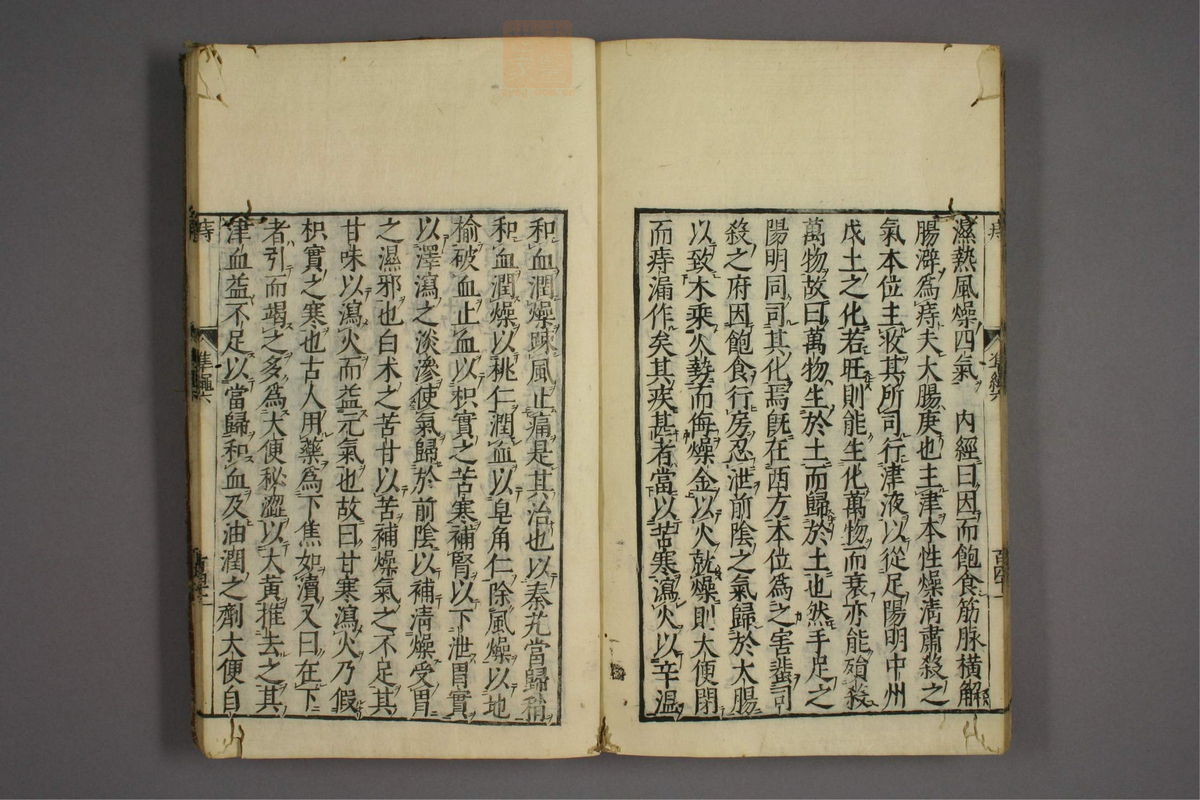 濕熱風燥四氣　內經曰因而飽食筋脉橫解
腸澼爲痔夫大腸庚也主津本性燥淸肅殺之
氣本位主收其所司行津液以從足陽明中州
戊土之化若旺則能生化萬物而衰亦能殞殺
萬物故曰萬物生於土而歸於土也然手足之
陽明同司其化焉旣在西方本位爲之害蜚司
殺之府因飽食行房忍泄前陰之氣歸於大腸
以致木乘火勢而侮燥金以火就燥則大便閉
而痔漏作矣其疾甚者當以苦寒瀉火以辛温
和血潤燥踈風止痛是其治也以秦艽當歸稍
和血潤燥以桃仁潤血以皂角仁除風燥以地
榆破血止血以枳實之苦寒補腎以下泄胃實
以澤瀉之淡滲使氣歸於前陰以補淸燥受胃
之濕邪也白术之苦甘以苦補燥氣之不足其
甘味以瀉火而益元氣也故曰甘寒瀉火乃假
枳實之寒也古人用藥爲下焦如瀆又曰在下
者引而竭之多爲大便秘澀以大黃推去之其
津血益不足以當歸和血及油潤之劑大便自
痔
準繩六